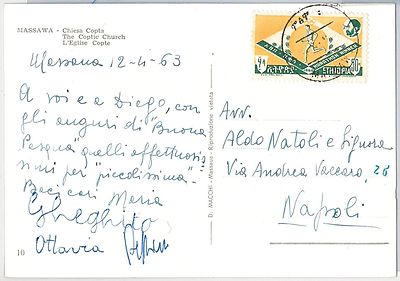 MASSAWA - Chiesa Copta
The Coptic Church
L'Eglise Copte
Massaua 12-4-63
A voi e a Diego, con
gli auguri di "Buona
Pasqua" quelli affettuosis
simi per piccolissima
Baci cari Maria
Gheghito
Ottavia
10
D. MACCHI - Massaua - Riproduzione vietata
ETHIOPIA
Avv.
Aldo Natoli e Signora
Via Andrea Vaccaro, 26
Napoli